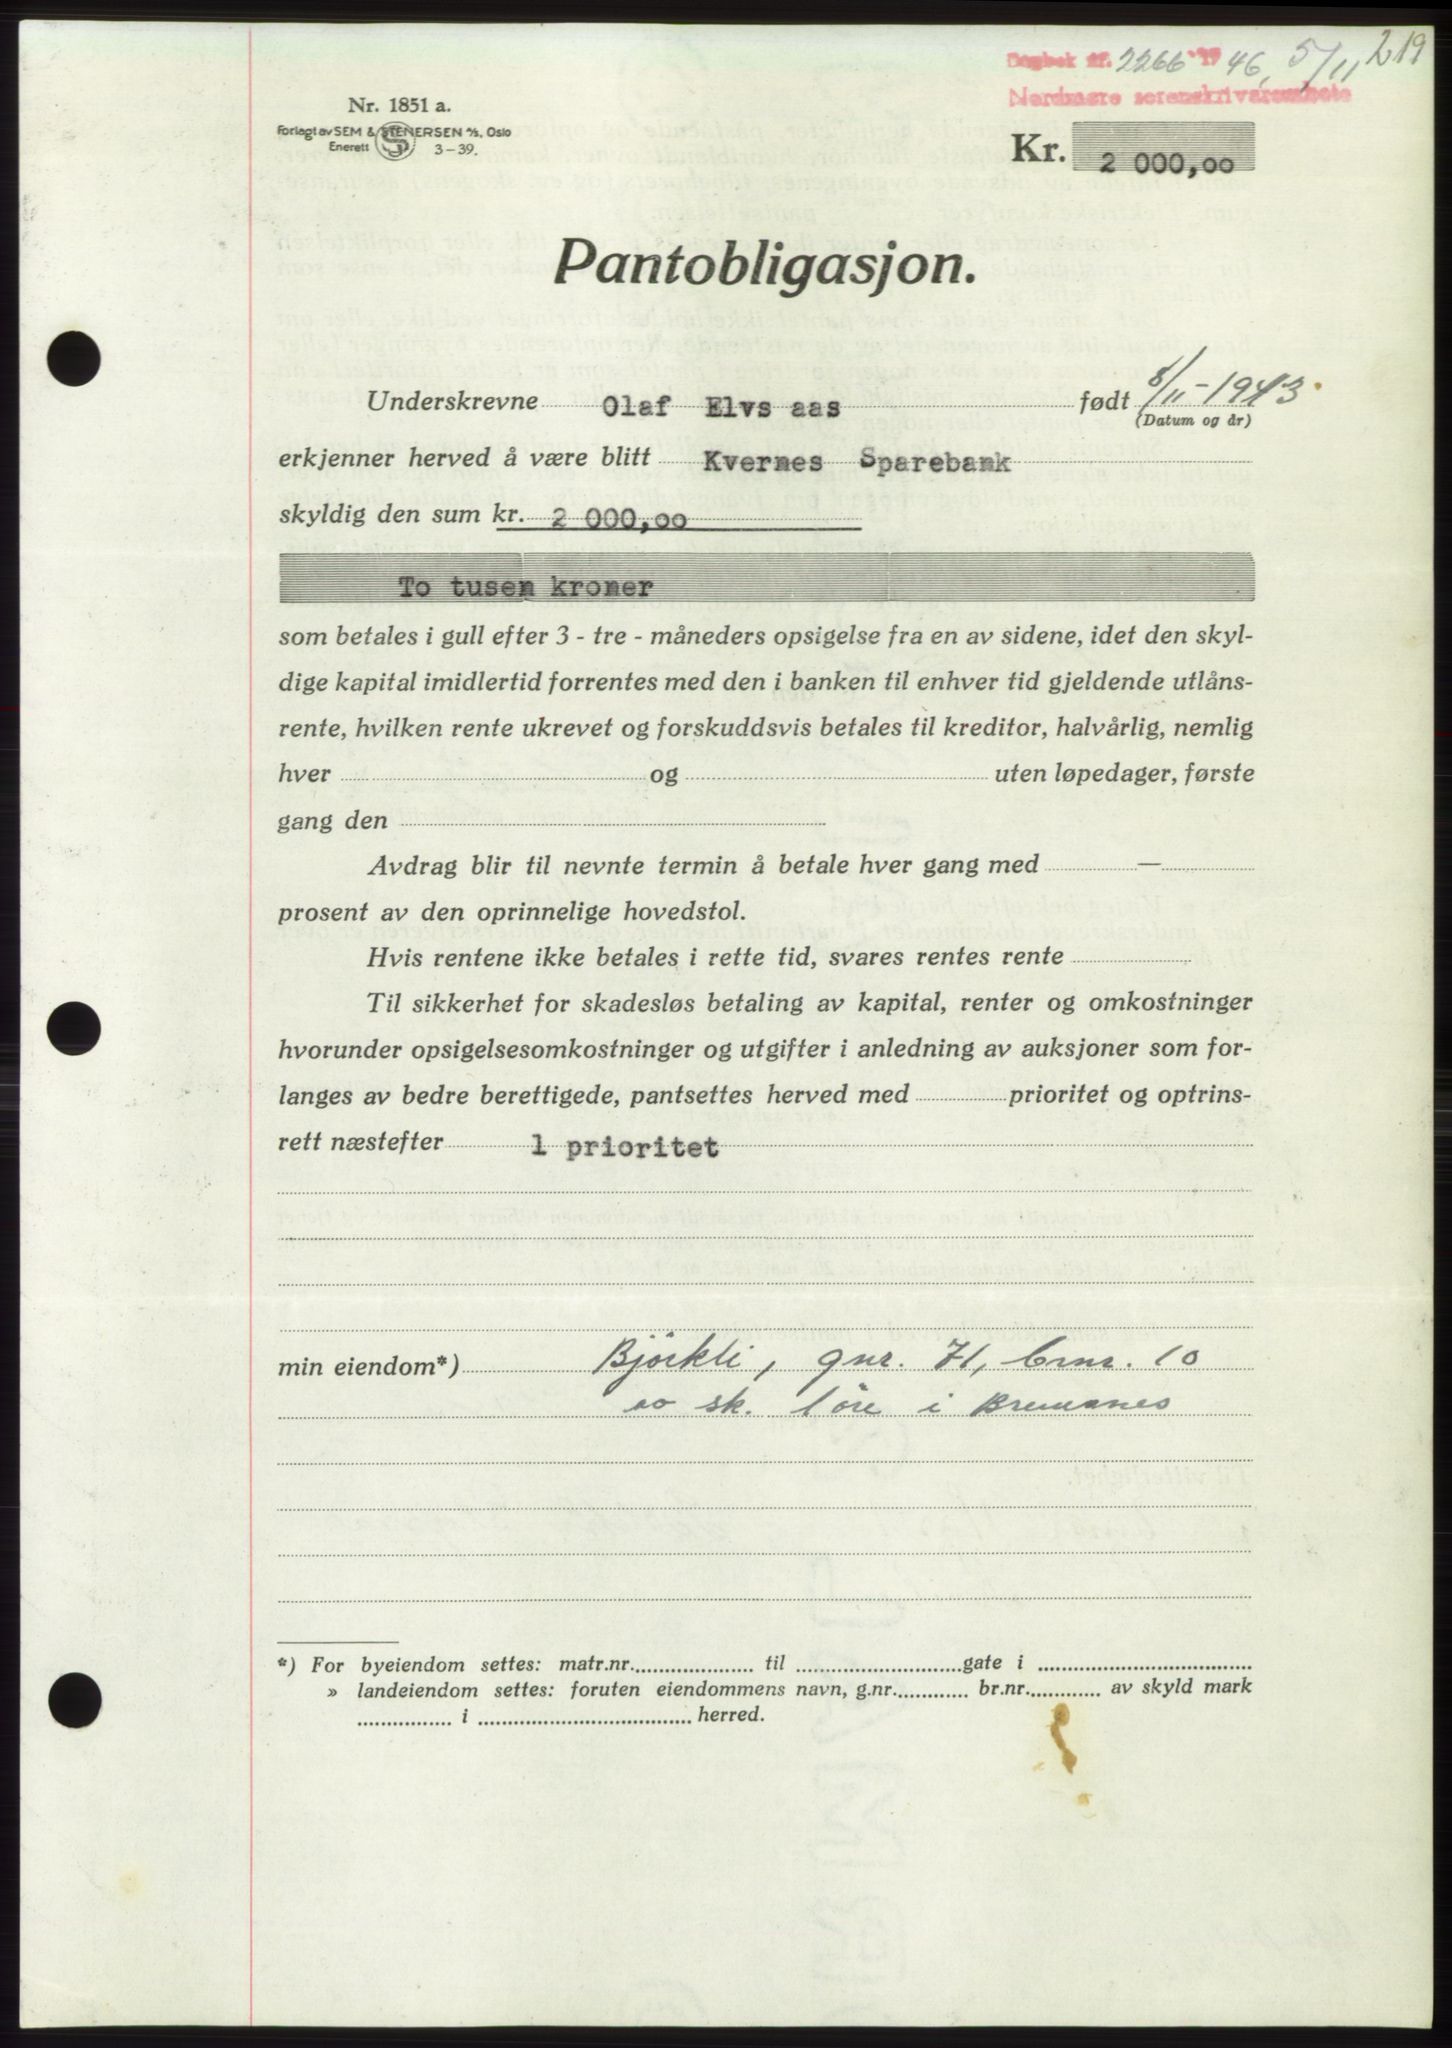 219
Dagbok nr. 2266 19 46, 5/11
Nordmøre sorenskriverembete
Nr. 1851 a.
Forlagt av SEM & STENERSEN A/S, Oslo
Enerett 3-39.
Kr. 2 000,oo
Pantobligasjon.
Underskrevne Olaf Elvs aas født 8/11-1943.
(Datum og år)
erkjenner herved å være blitt Kvernes Sparebank
skyldig den sum kr. 2 000,oo
To tusen kroner
som betales i gull efter 3 - tre - måneders opsigelse fra en av sidene, idet den skyl-
dige kapital imidlertid forrentes med den i banken til enhver tid gjeldende utlåns-
rente, hvilken rente ukrevet og forskuddsvis betales til kreditor, halvårlig, nemlig
hver og uten løpedager, første
gang den
Avdrag blir til nevnte termin å betale hver gang med —
prosent av den oprinnelige hovedstol.
Hvis rentene ikke betales i rette tid, svares rentes rente
Til sikkerhet for skadesløs betaling av kapital, renter og omkostninger
hvorunder opsigelsesomkostninger og utgifter i anledning av auksjoner som for-
langes av bedre berettigede, pantsettes herved med prioritet og optrins-
rett næstefter 1 prioritet
min eiendom*) Björkli, gnr. 71, brnr. 10
av sk. 1 öre i Bremsnes
*) For byeiendom settes: matr.nr. til gate i
» landeiendom settes: foruten eiendommens navn, g.nr. br.nr. av skyld mark
i herred.